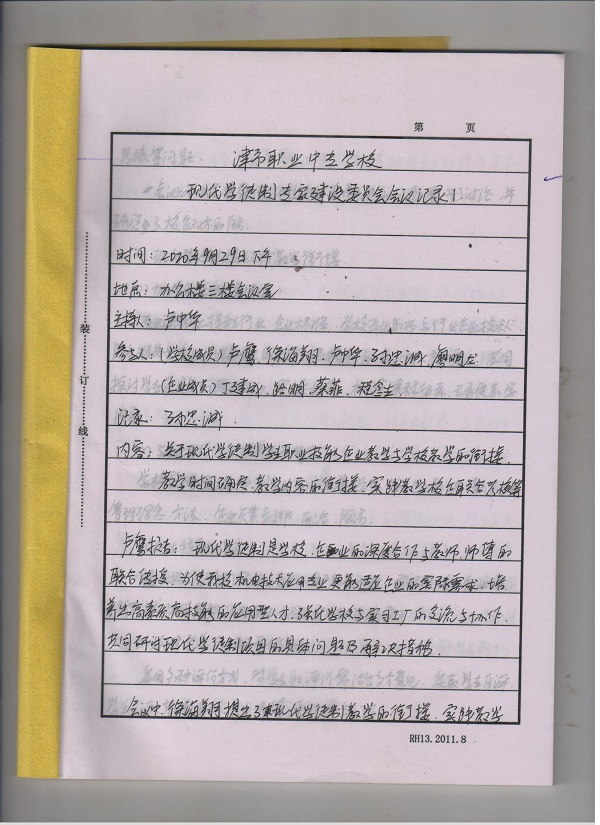 第 页
津市职业中专学校
现代学徒制专家建设委员会会议记录
时间：2020年9月29日下午
地点：办公楼三楼会议室
主持人：卢中华
参与人：（学校成员）卢鹰 徐海翔 卢中华 孙忠诚 廖明龙
（企业成员）丁建成 明 蔡菲 程
记录：孙忠诚
内容：关于现代学徒制学生职业技能企业教学与学校教学的衔接，
教学时间确定，教学内容的衔接，实践教学校企联合及考核等
卢鹰报告：现代学徒制是学校、企业的深度合作与教师、师傅的
联合传授，为使我校机电技术应用专业更能适应企业的实际需求，培
养出高素质高技能的应用型人才，强化学校与实习工厂的交流与协作，
共同研讨现代学徒制项目的具体问题及解决措施。
会议中，徐海翔提出了现代学徒制教学的衔接，实践教学
装
订
线
RH13.2011.8